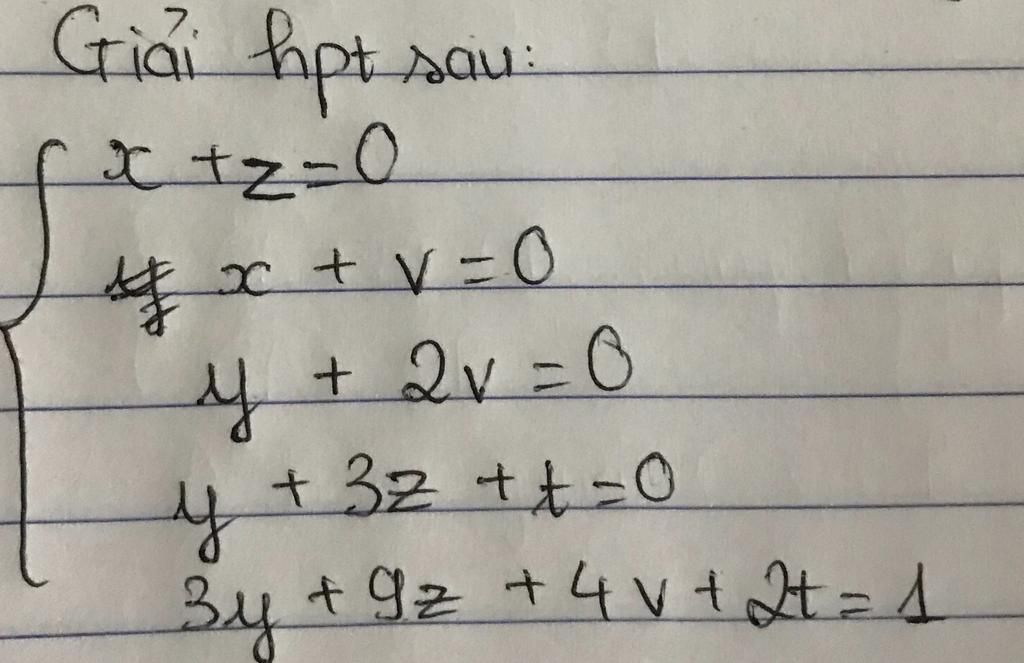 Giải hpt sau:
x + z = 0
x + v = 0
y + 2v = 0
y + 3z + t = 0
3y + 9z + 4v + 2t = 1